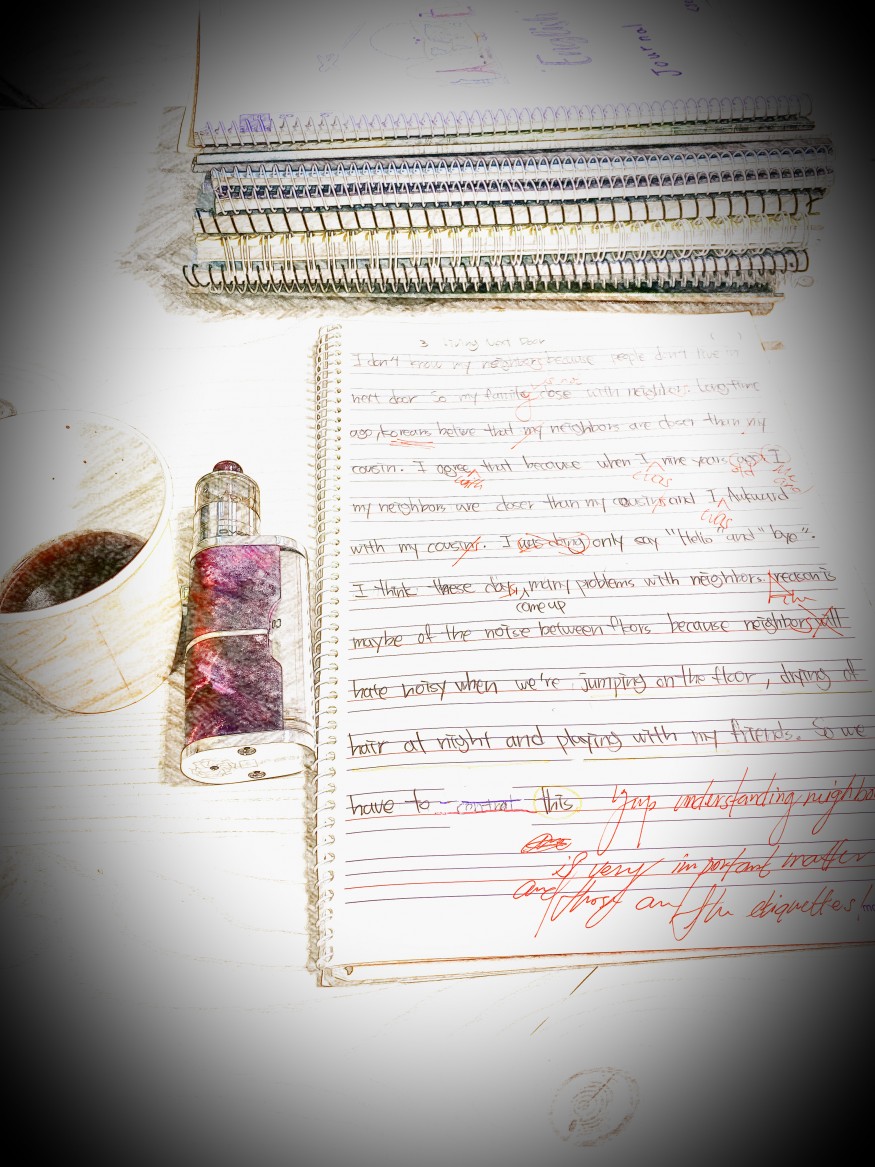 English
Journal
3 Living Next Door
I don't know my neighbors because people don't live in
next door So my family close with neighbors. Long time
ago, Koreans belive that my neighbors are closer than my
cousin. I agree with that because when I was nine years ago I
my neighbors are closer than my cousins and I was Awkward
with my cousins. I was only say "Hello" and "bye".
I think these days, many problems with neighbors. reason is
come up The
maybe of the noise between floors because neighbors will
hate noisy when we're jumping on the floor, drying of
hair at night and playing with my friends. So we
have to control this
Yup understanding neighbo
is very important matter
and those are the etiquettes